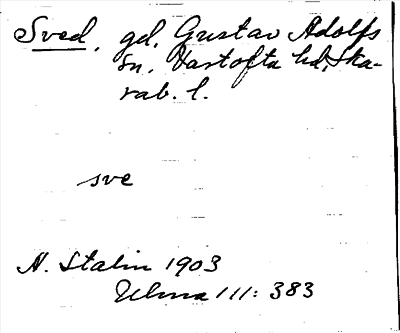 Sved, gd, Gustav Adolfs
sn. Vartofta hd, Ska-
rab. l.
sve
N. Stalin 1903
Ulma 111: 383